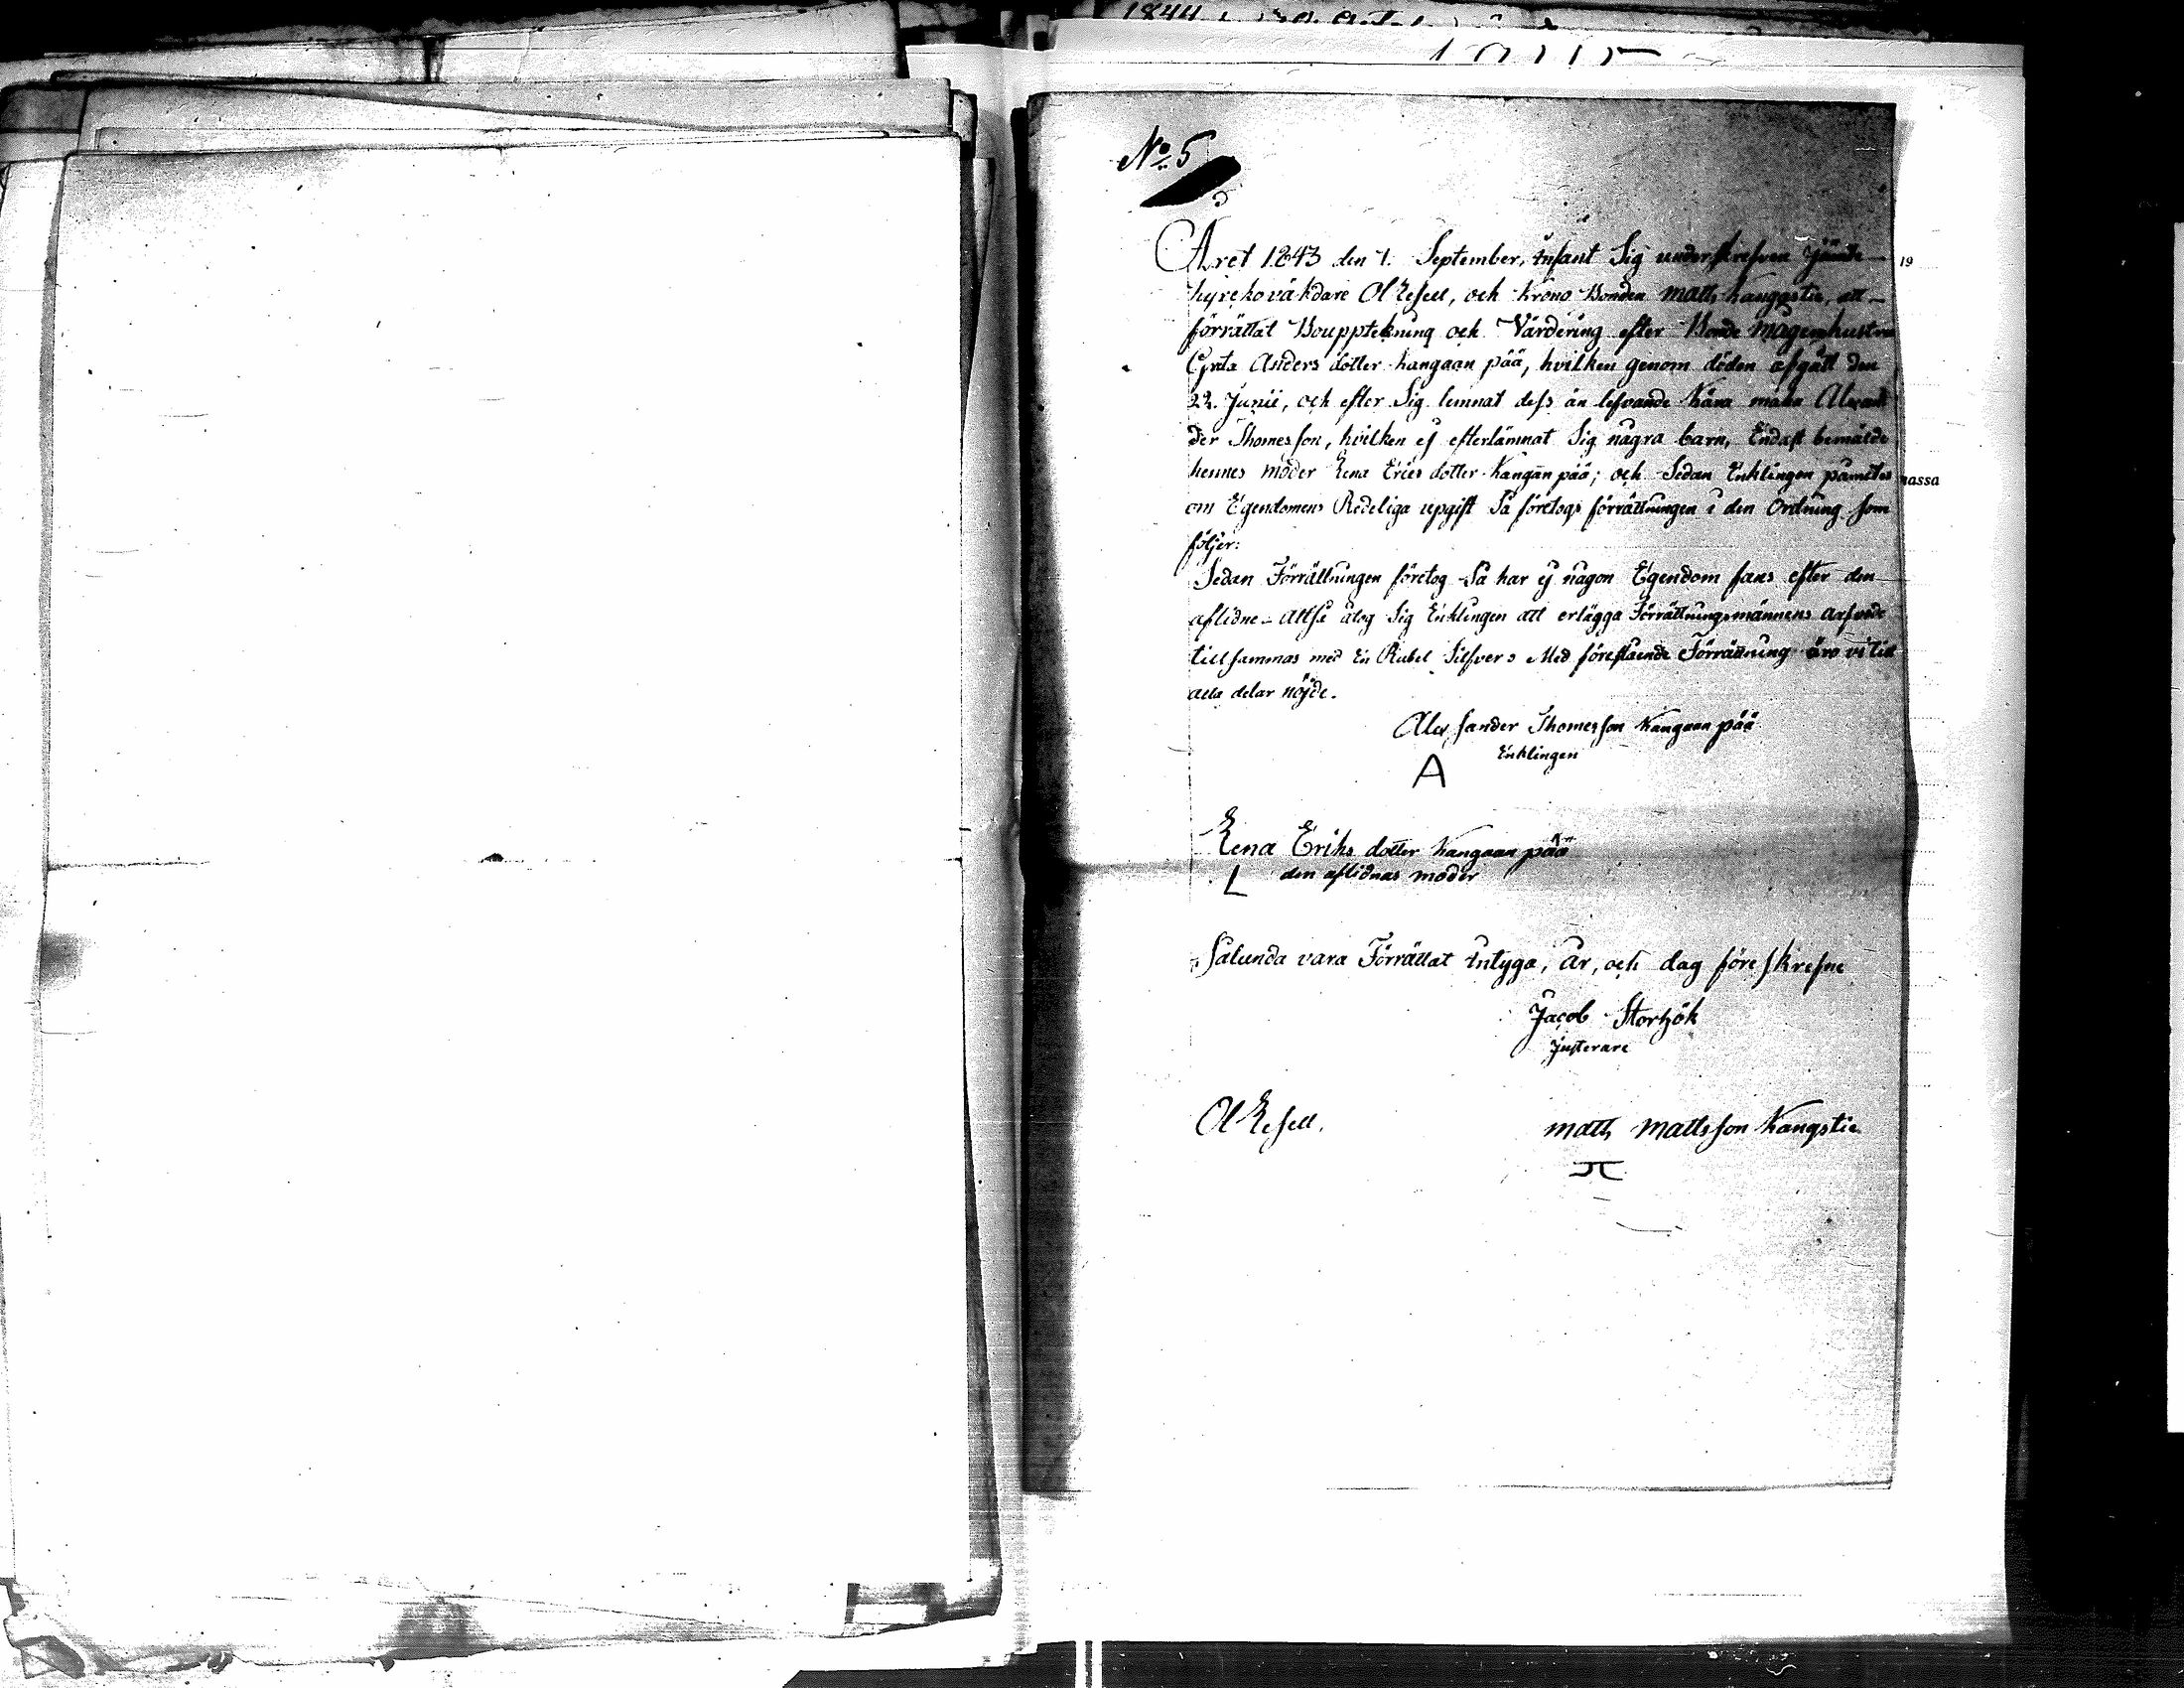 No 5
Året 1843 den 1. September, infant Sig underskrefven Jämte
kyrckoväkdare Ol Lefell, och Krono Bonden Matts Kangastie, att
förrättat Bouppteckning och Värdering efter Bonde Mågenhustru
Greta Anders dotter kangaan pää, hvilken genom döden afgått den
22. Junii, och efter Sig lemnat dess än lefvande Kära man Alexan
der Thomesson, hvilken ej efterlämnat Sig några barn, Endast bemälde
hennes moder Lena Erics dotter Kangan pää; och Sedan Enklingen påmintes
om Egendomens Redeliga upgift Så företogs förrättningen i den Ordning som
följer:
Sedan Förrättningen företog Så har ej någon Egendom fans efter den
aflidne - Alltså åtog Sig Enklingen att erlägga Förrättningsmännens Arfvode
tillsammas med En Rubel Silfver Med föreståènde Förrättning äro vi till
alla delar nöjde.
Alexsander Thomesson Kangaan pää
Enklingen
A
Lena Eriks dotter Kangaan pää
L den aflidnas moder
Sålunda vara Förrättat intyga, År, och dag föreskrefne
Jacob Storhök
Justerare
Ol Lefell. Matts Mattsson Kangstie
1844
19
massa